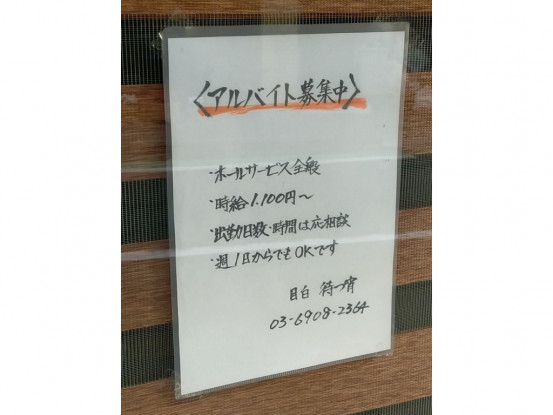 〈アルバイト募集中〉
・ホールサービス全般
・時給1.100円～
・出勤日数・時間は応相談
・週1日からでもOKです
目白 待つ宵
03-6908-2364